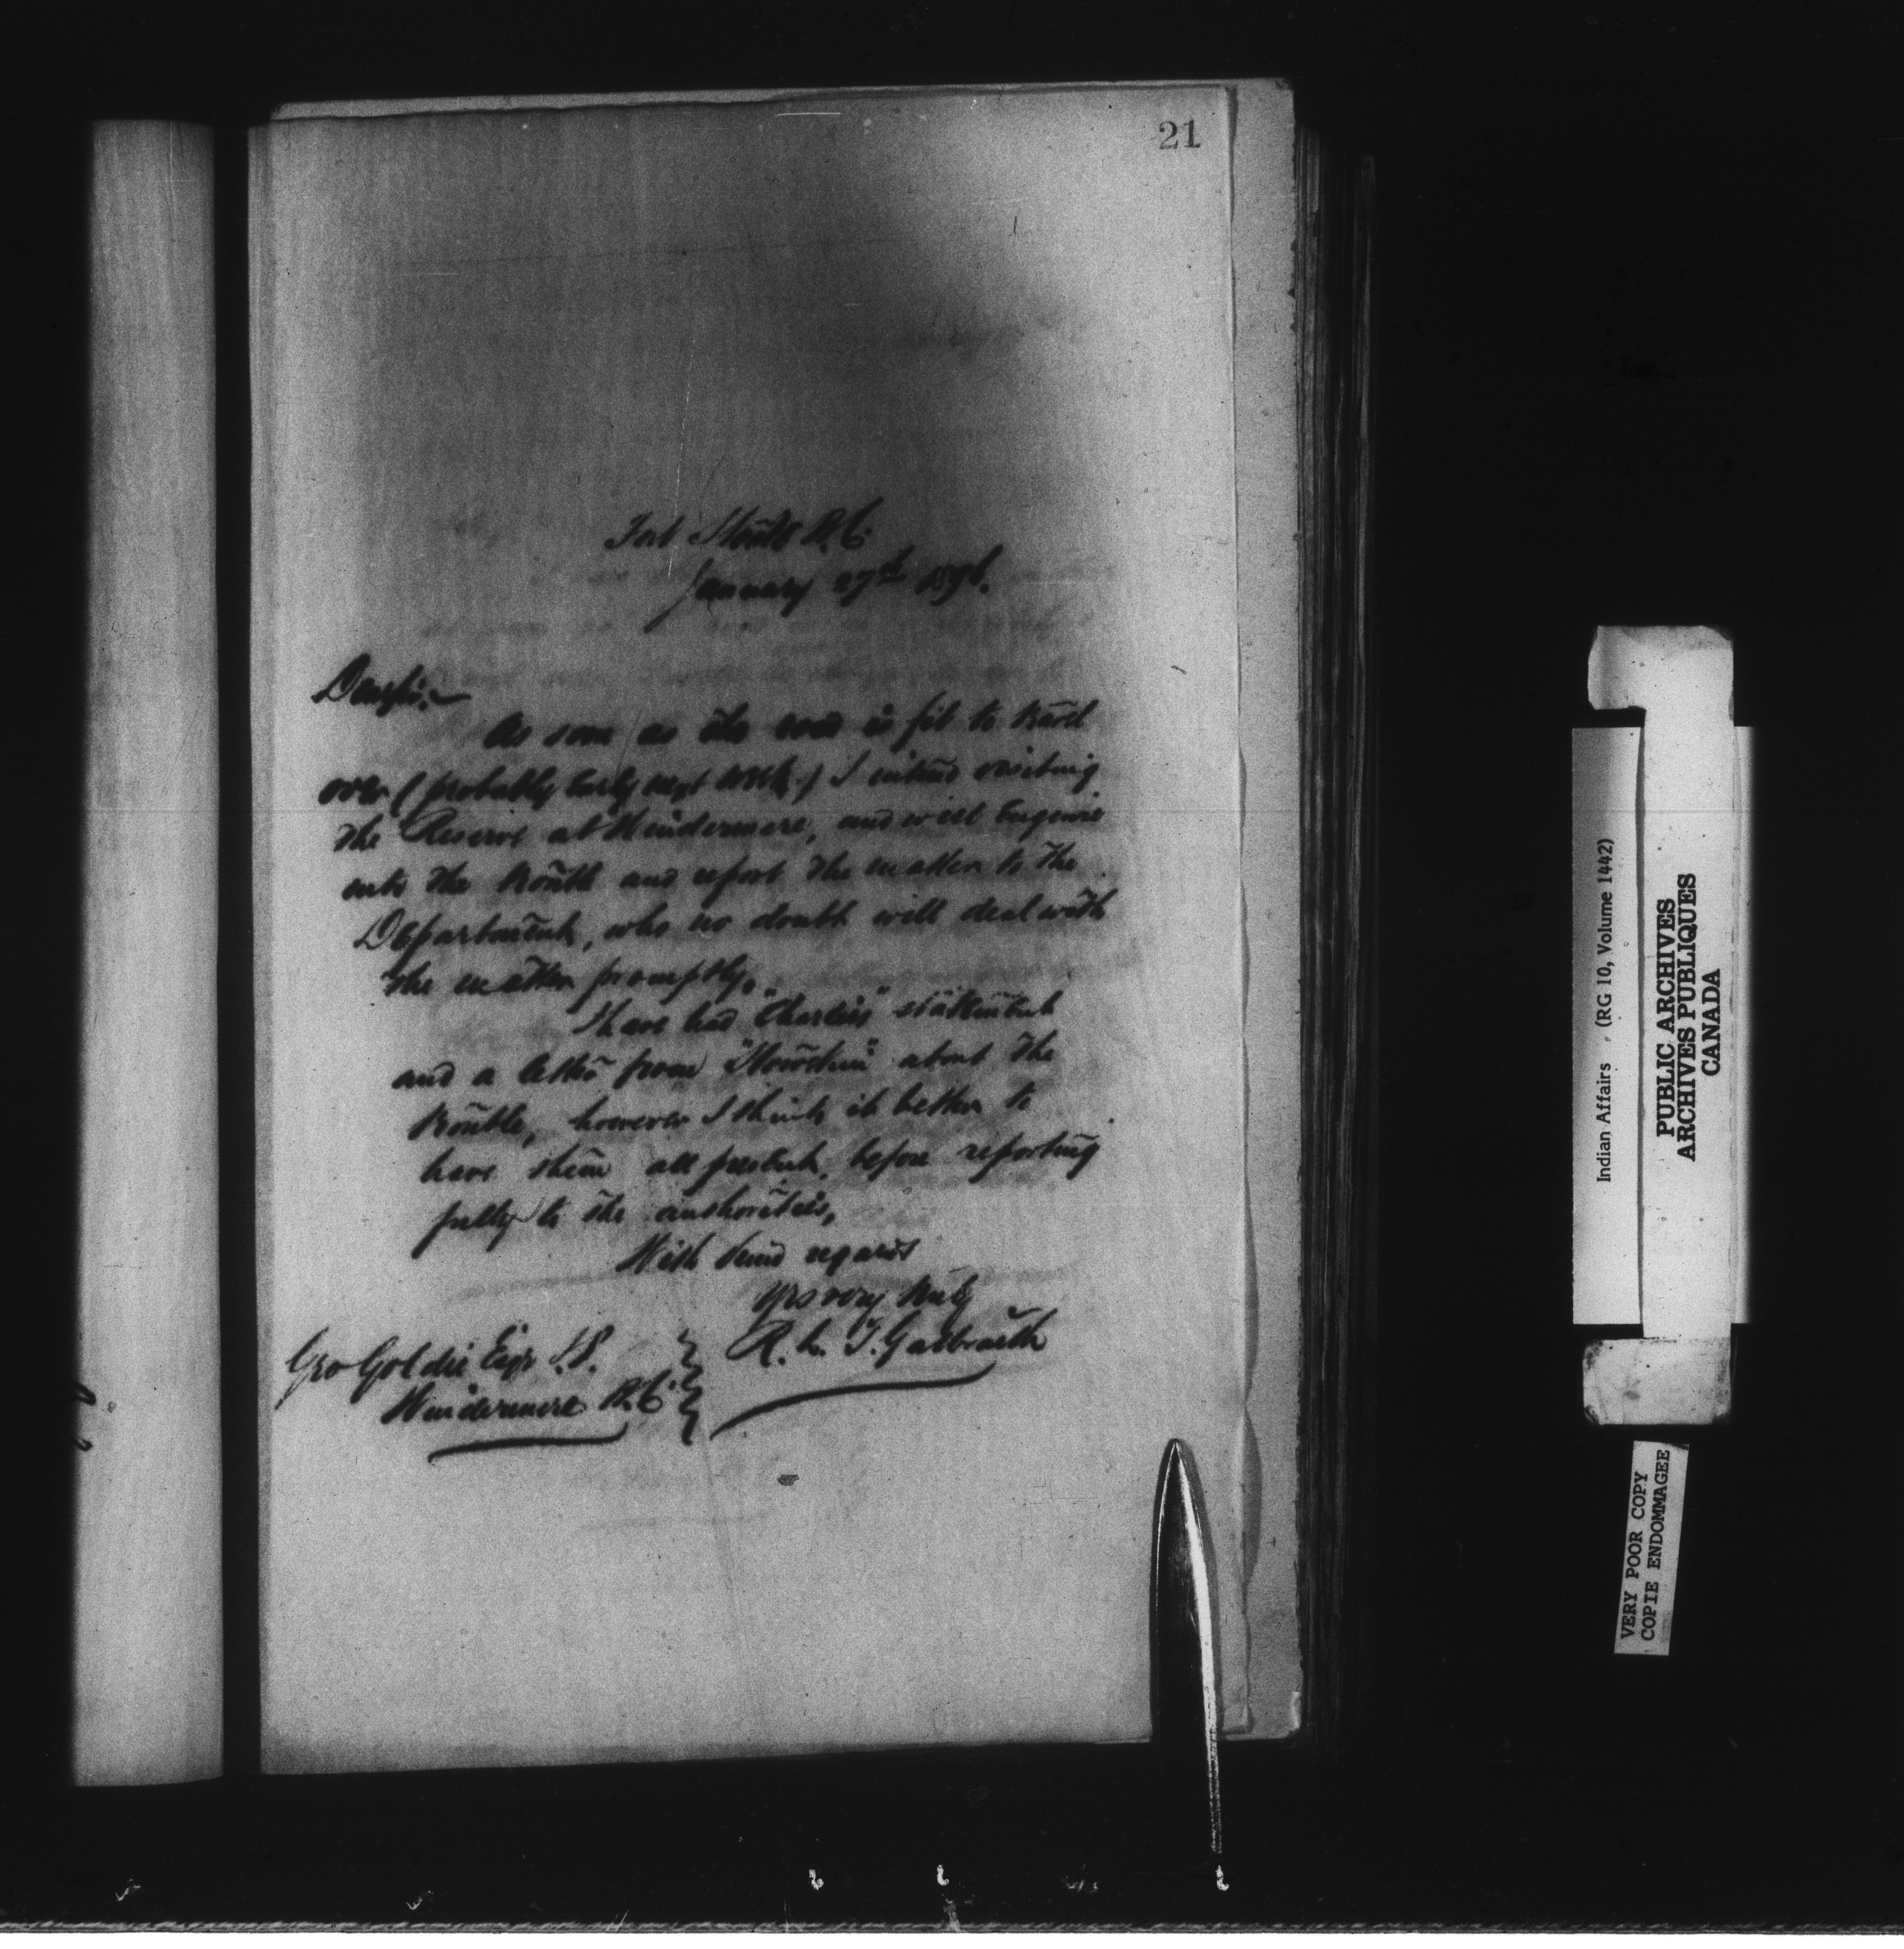 21
Fort Steele B.C.
January 27th 1896.
Dear Sir:
As soon as the road is fit to travel
over (probably early next week.) I intend visiting
the Reserve at Windermere, and will enquire
into the trouble and report the matter to the
Department, who no doubt will deal with
the matter promptly.
I have had "Charlies" statement
and a letter from about the
trouble, however I think it better to
have them all present, before reporting
fully to the authorities,
With kind regards
Yrs very truly
R. L. T. Galbraith
Geo Goldie Esqr
Windermere B.C.
Indian Affairs (RG 10, Volume 1442)
PUBLIC ARCHIVES
ARCHIVES PUBLIQUES
CANADA
VERY POOR COPY
COPIE ENDOMMAGEE